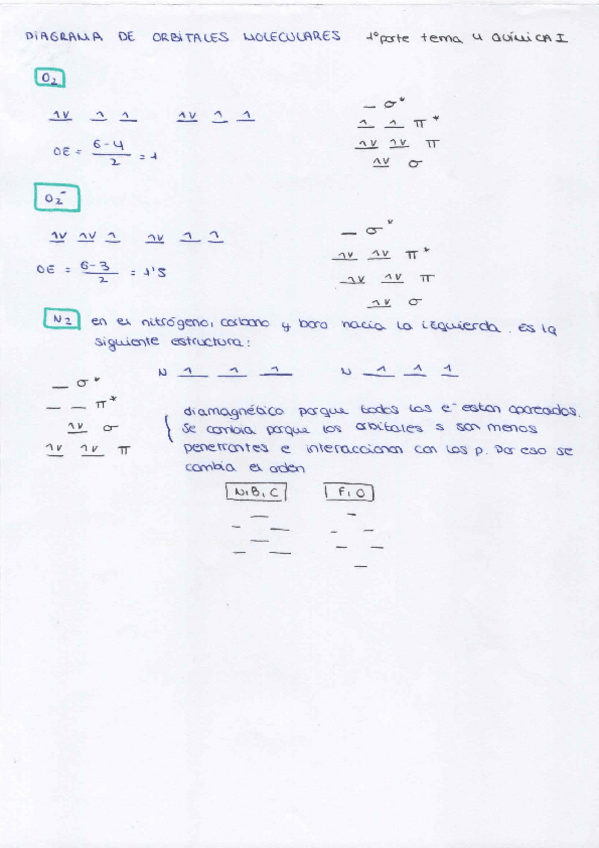 DIAGRAMA DE ORBITALES MOLECULARES 1º parte tema 4 QUÍMICA I
O₂
1v 1 1 1v 1 1
— σ*
1 1 π*
1v 1v π
1v σ
OE = 6-4/2 = 1
O₂⁻
1v 1v 1 1v 1 1
— σ*
1v 1v π*
1v 1v π
1v σ
OE = 6-3/2 = 1'5
N₂ en el nitrógeno, carbono y boro hacia la izquierda. Es la
siguiente estructura:
N 1 1 1 N 1 1 1
— σ*
— — π*
1v σ
1v 1v π
diamagnético porque todos los e⁻ estan apareados.
Se cambia porque los orbitales s son menos
penetrantes e interaccionan con los p. Por eso se
cambia el orden
N, B, C F, O